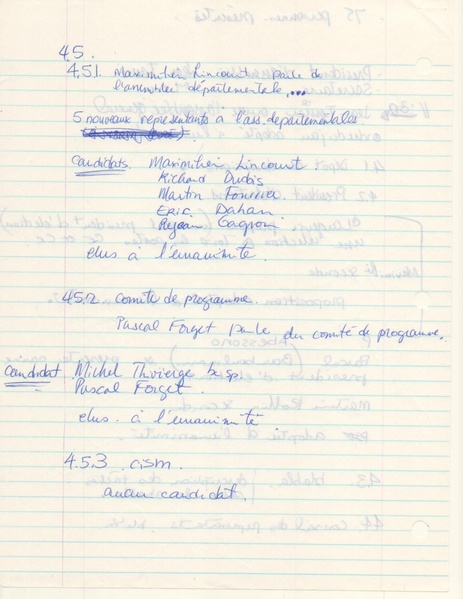 4.5.
4.5.1. Maximilien Lincourt parle de
l'assemblée départementale,...
5 nouveaux représentants à l'ass. départementales
Candidats. Maximilien Lincourt.
Richard Dubis
Martin Fournier
Eric Dahan
Rejean Gagnon
elus à l'unanimité.
4.5.2 comité de programme.
Pascal Forget parle du comité de programme.
Candidat Michel Thivierge
Pascal Forget.
elus à l'unanimité
4.5.3 cism.
aucun candidat.